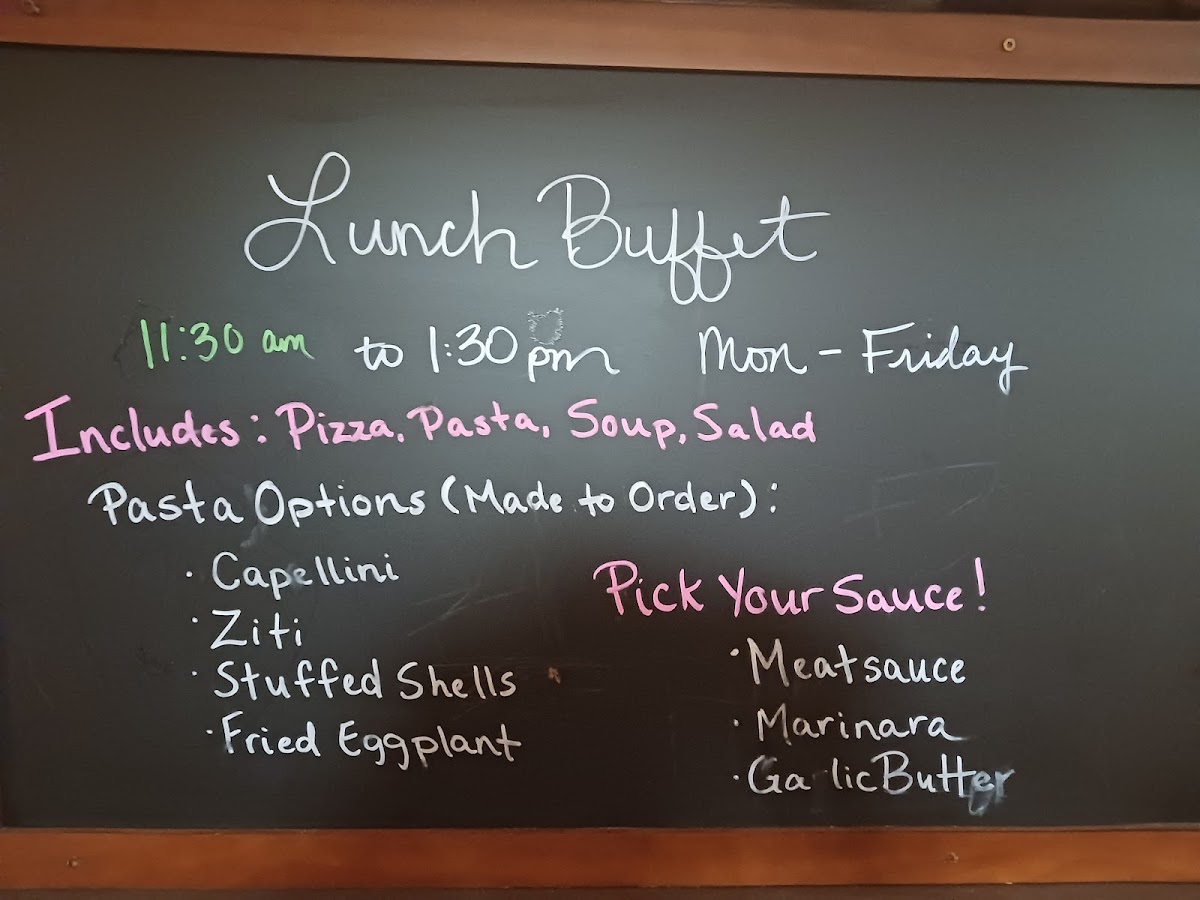 Lunch Buffet
11:30 am to 1:30 pm Mon - Friday
Includes: Pizza, Pasta, Soup, Salad
Pasta Options (Made to Order):
· Capellini
· Ziti
· Stuffed Shells
· Fried Eggplant
Pick Your Sauce!
· Meatsauce
· Marinara
· Ga lic Butter